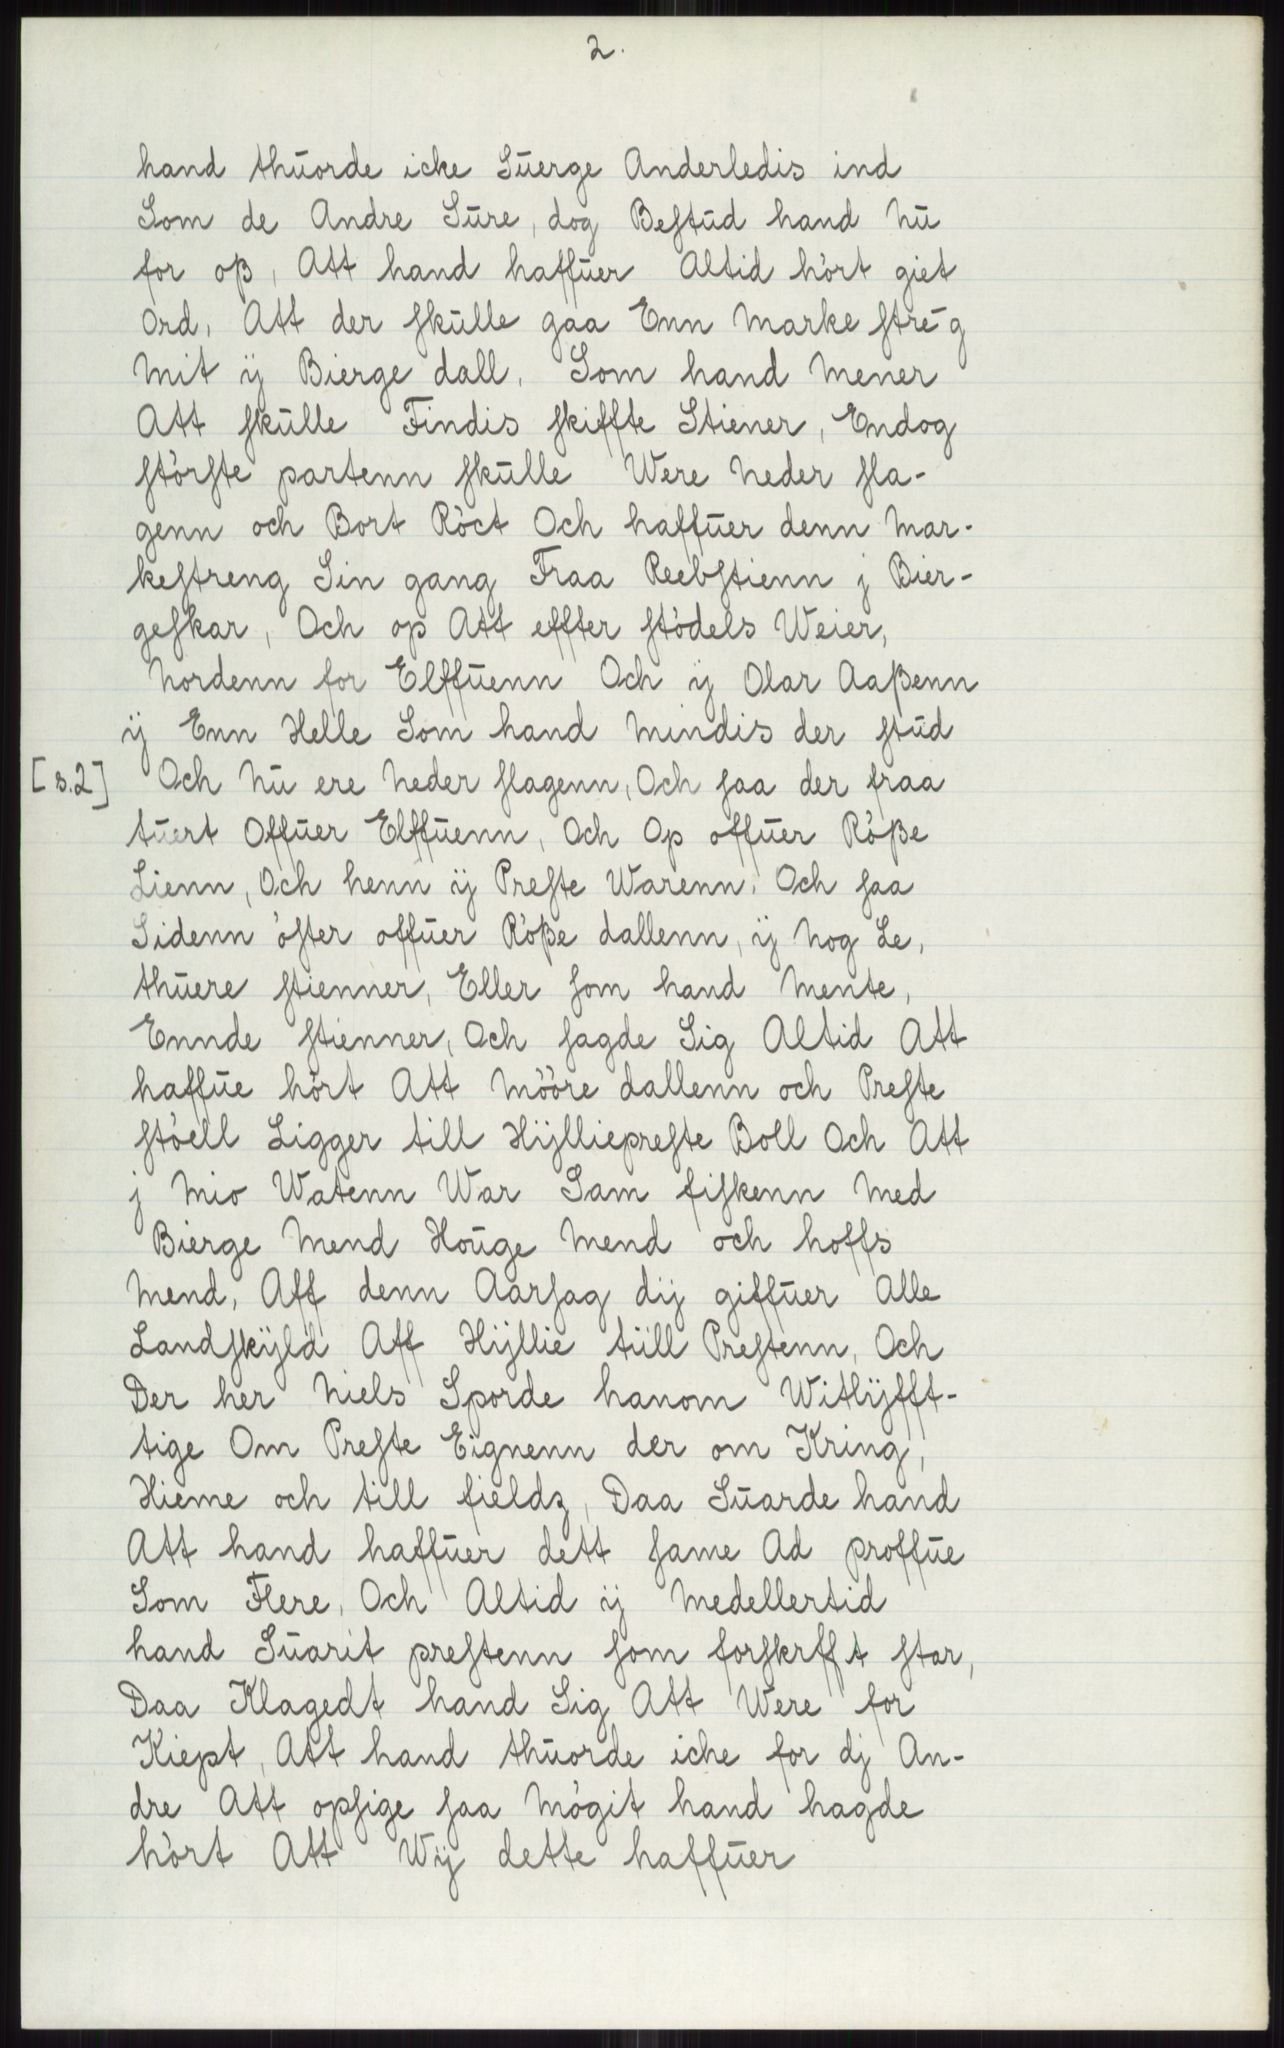 2.
hand thuorde icke Suerge Anderledis ind
Som de Andre Sure, dog Bestud hand nu
for oß, Att hand haffuer Altid hört giet
Ord, Att der skulle gaa Enn Marke stre-g
Mit ÿ Bierge dall, Som hand Mener
Att skulle Findis skiffte Stiener, Endog
störste partenn skulle Were neder sla-
genn och Bort Röct Och haffuer denn Mar-
kestreng Sin gang Fraa Reebstienn j Bier-
geskar, Och op Att effter stödels Weier,
Nordenn for Elffuenn Och ÿ Olar Aaßenn
ÿ Enn Helle Som hand Mindis der stud
[s.2] Och Nu ere Neder slagenn, Och saa der fraa
tuert Offuer Elffuenn, Och Op offuer Röße
Lienn, Och henn ÿ Preste Warenn. Och saa
Sidenn öster offuer Röße dallenn, ÿ Nog Le,
thuere stienner, Eller som hand Mente,
Ennde stienner, Och sagde Sig Altid Att
haffue hört Att Mööre dallenn och Preste
stöell Ligger till Hÿllieprestе Boll Och Att
j Mio Watenn War Sam fiskenn Med
Bierge Mend Houge Mend och hoffs
Mend, Aff denn Aarsag dÿ giffuer Alle
Landskÿld Aff Hÿllie till Prestenn, Och
Der her Niels Sporde hanom Witlÿfft-
tige Om Preste Eignenn der om Kring,
Hieme och till fieldz, Daa Suarde hand
Att hand haffuer dett same Ad proffue
Som Flere, Och Altid ÿ Medellertid
hand Suarit prestenn som forskrfft star,
Daa Klagedt hand Sig Att Were for
Kiept, Att hand thuorde iche for dj An-
dre Att opsige saa Mögit hand hagde
hört Att Wÿ dette haffuer